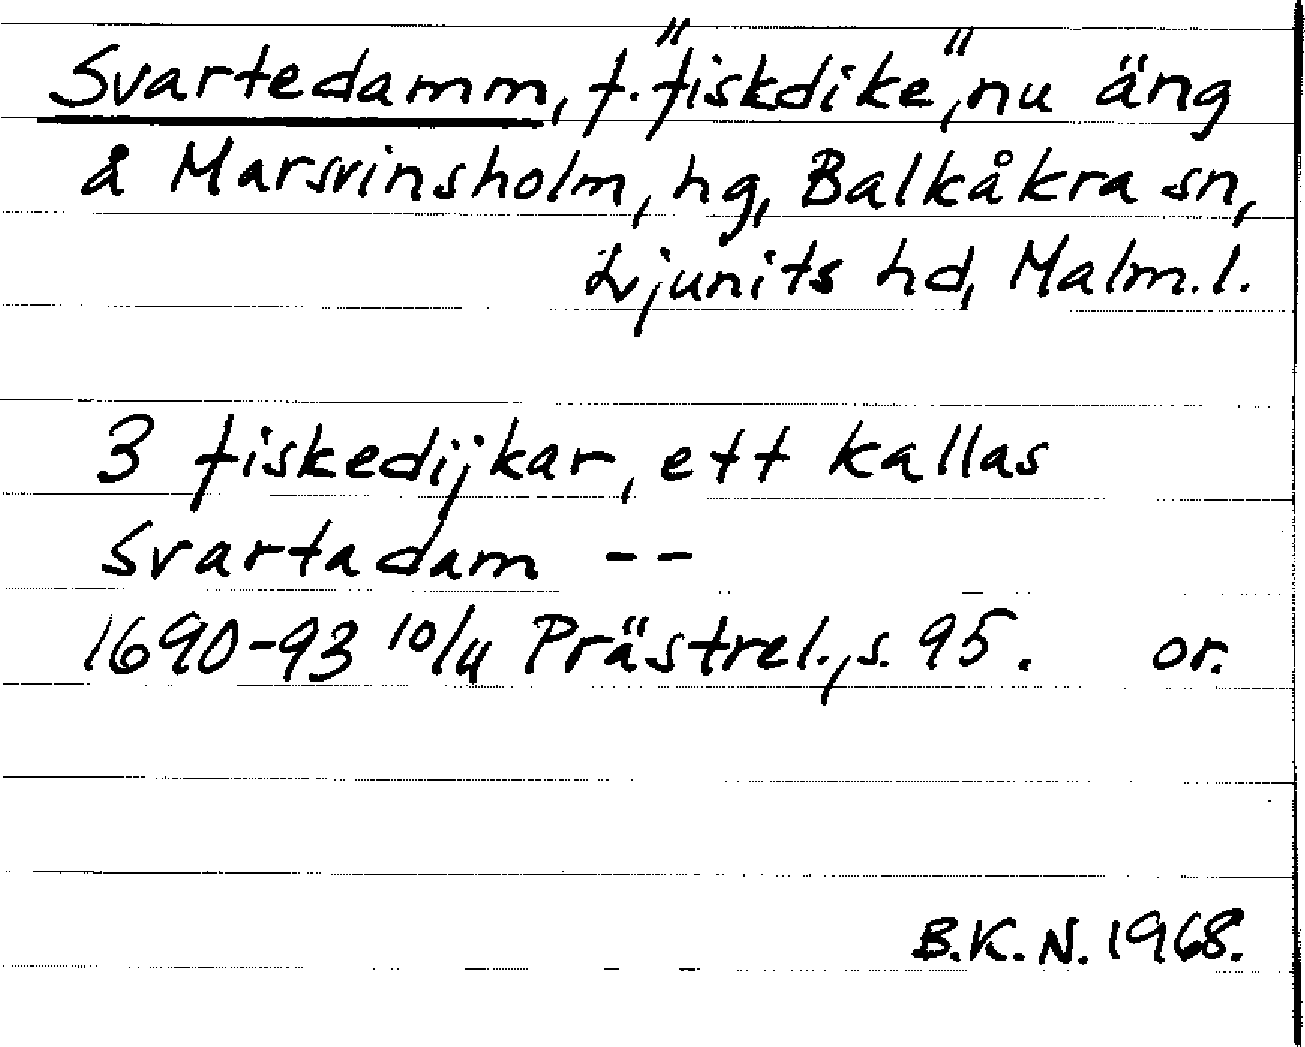 Svartedamm, f. "fiskdike", nu äng
å Marsvinsholm, hg, Balkåkra sn,
Ljunits hd, Malm. l.
3 fiskedijkar, ett kallas
Svartadam --
1690-93 10/4 Prästrel., s. 95. or.
B.K.N. 1968.